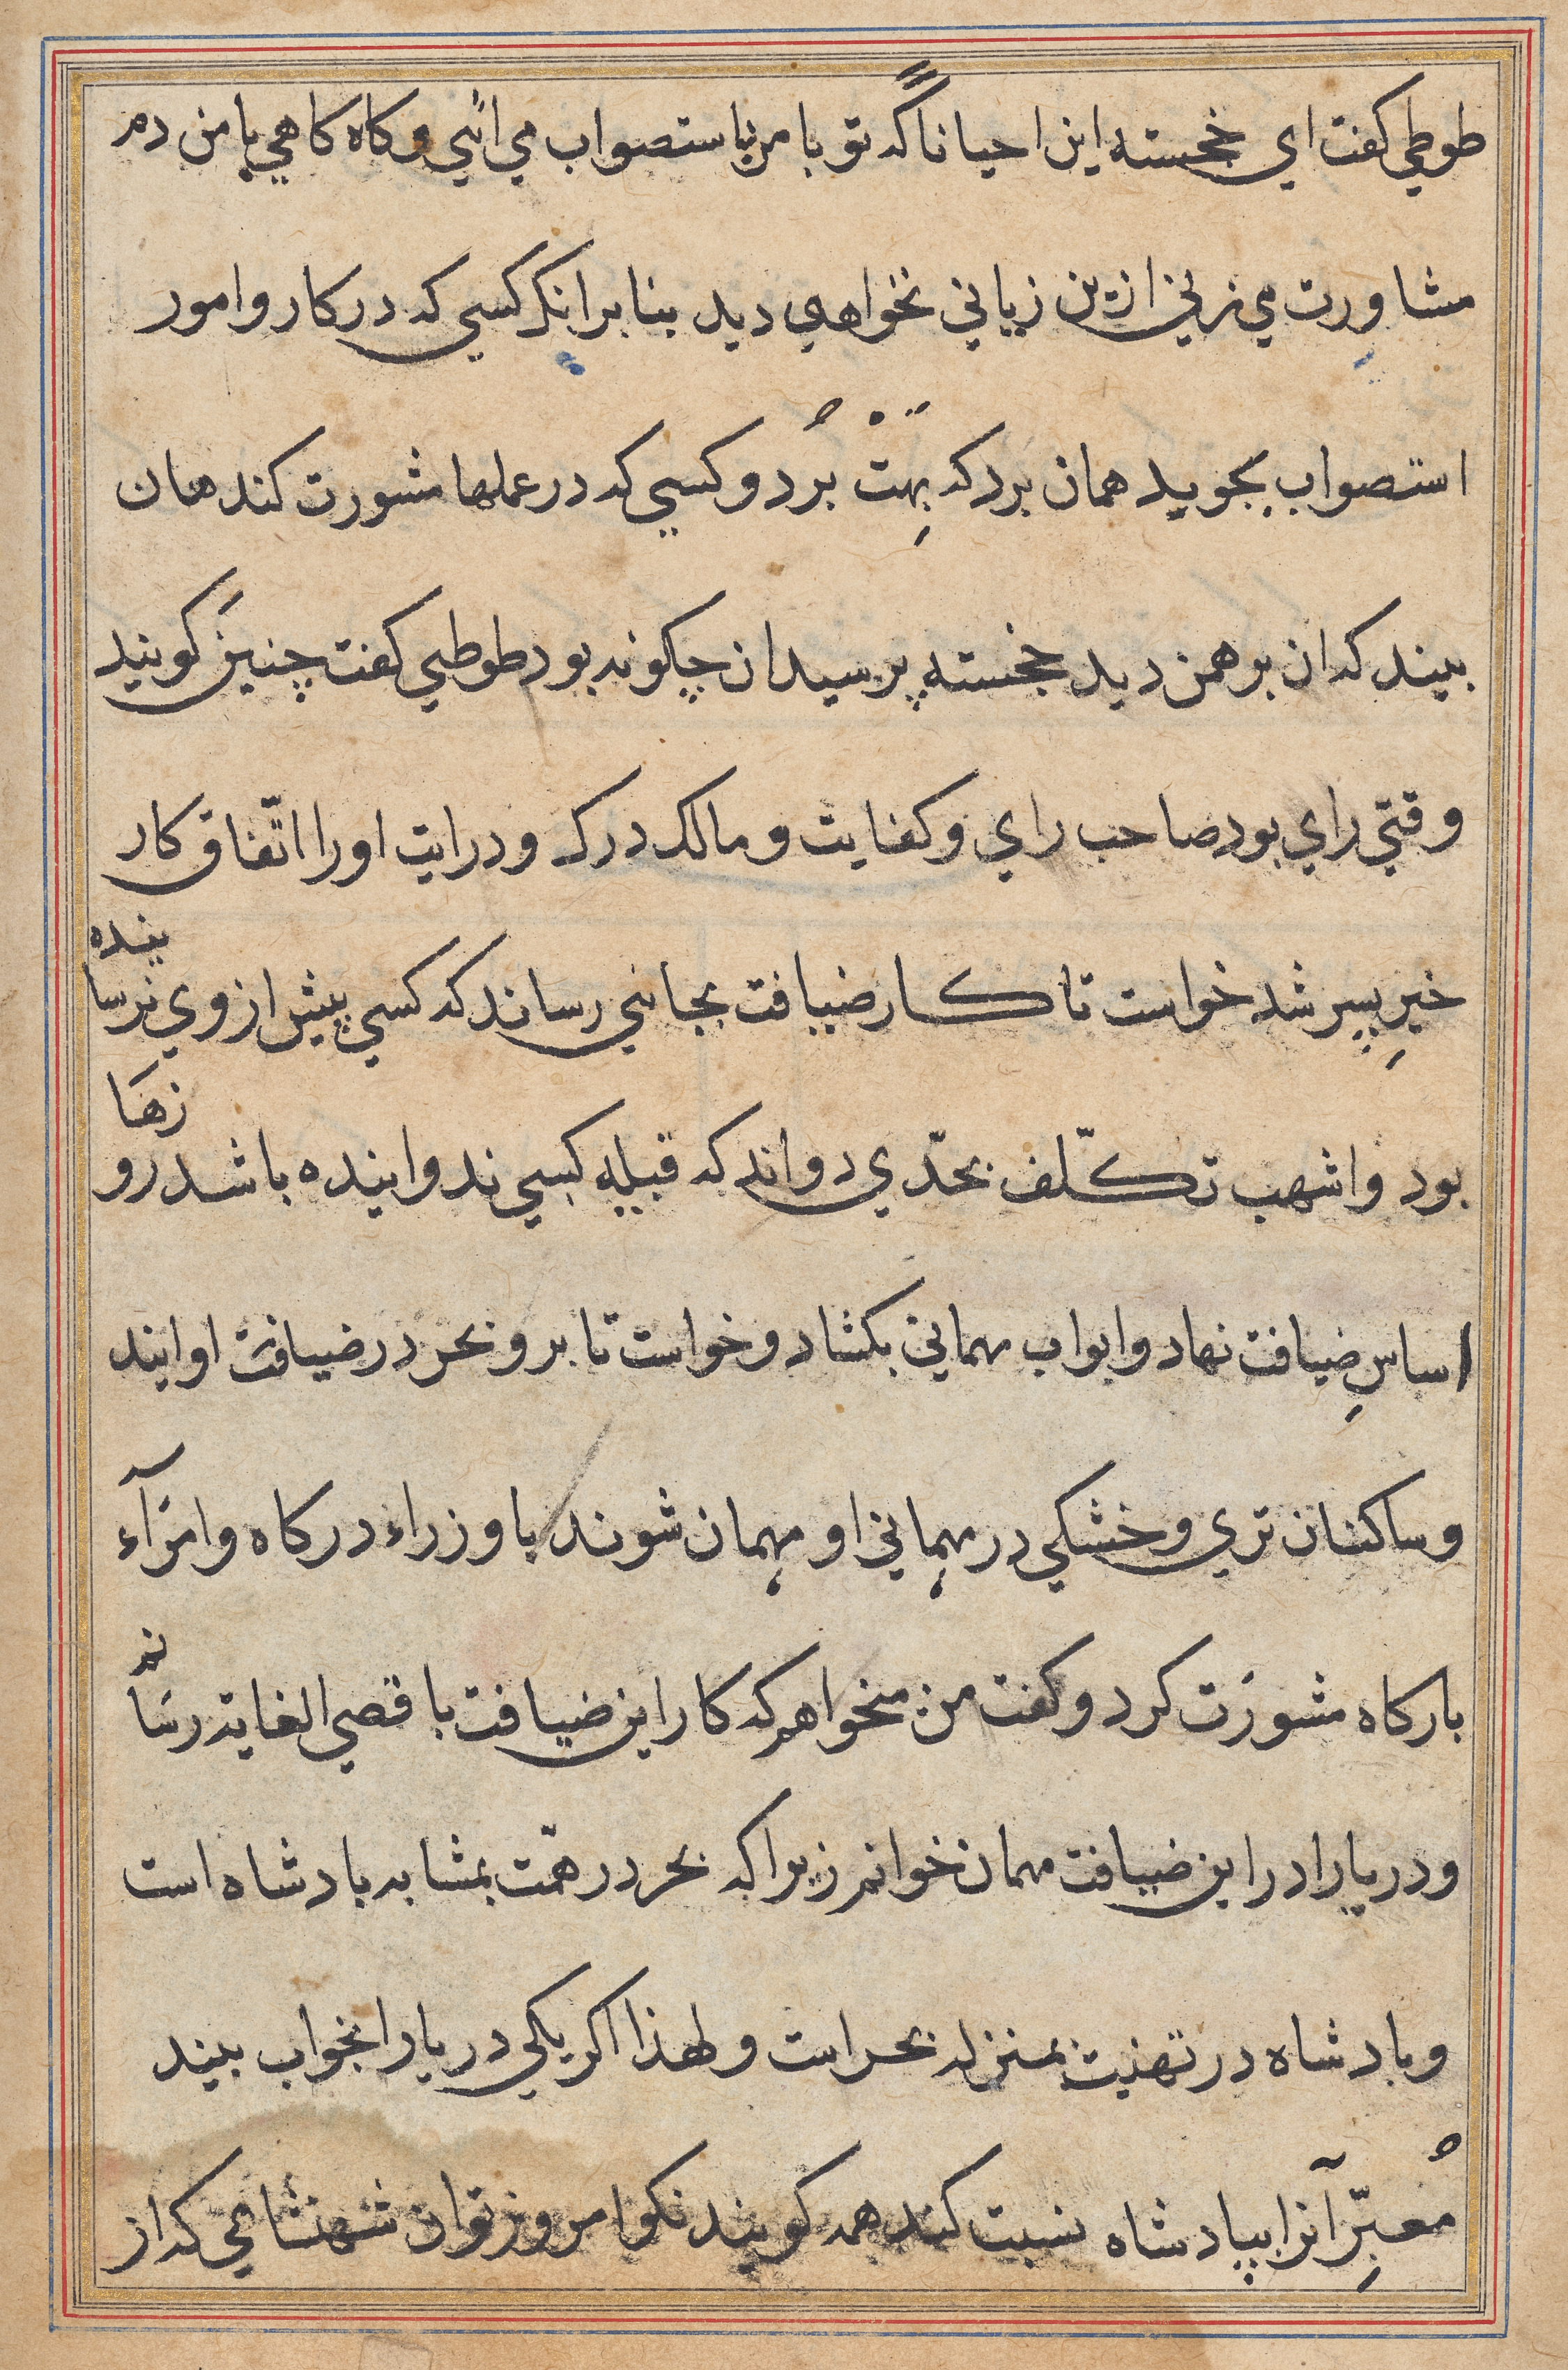 طوطي کفت اي خجسته این احیانا که تو با من باستصواب مي ائي و کاه کاهي با من دم
مشاورت مي زني ازین زیاني نخواهي دید بنابرانکه کسي که در کار و امور
استصواب بجوید همان برد که بِهت بُرد و کسي که در عملها مشورت کند همان
بیند که ان برهمن دید خجسته پرسید ان چکونه بود طوطي کفت چنین کویند
وقتي راي بود صاحب راي و کفایت و مالک درک و درایت او را اتّفاق کار
خیرِ پسر شد خواست تا کار ضیافت بجائي رساند که کسي پیش از وي نرسانیده
بود و اشهب تکلّف بحدّي دواند که قبیله کسي ندوانیده باشد روزها
اساسِ ضیافت نهاد و ابواب مهماني بکشاد و خواست تا بر و بحر در ضیافت او ایند
و ساکنان تري و خشکي در مهماني او مهمان شوند با وزراء درکاه و امرآء
بارکاه مشورت کرد و کفت من میخواهم که کار این ضیافت باقصي الغایة رسانم
و دریا را در این ضیافت مهمان خوانم زیرا که بحر در همّت بمشابه بادشاه است
و بادشاه در تهنیت بمنزله بحر است و لهذا اکر یکي دریا را بخواب بیند
مُعبّرِ آنرا بپادشاه نسبت کند همه کویند نکو امروز توان شهنشاهي که از